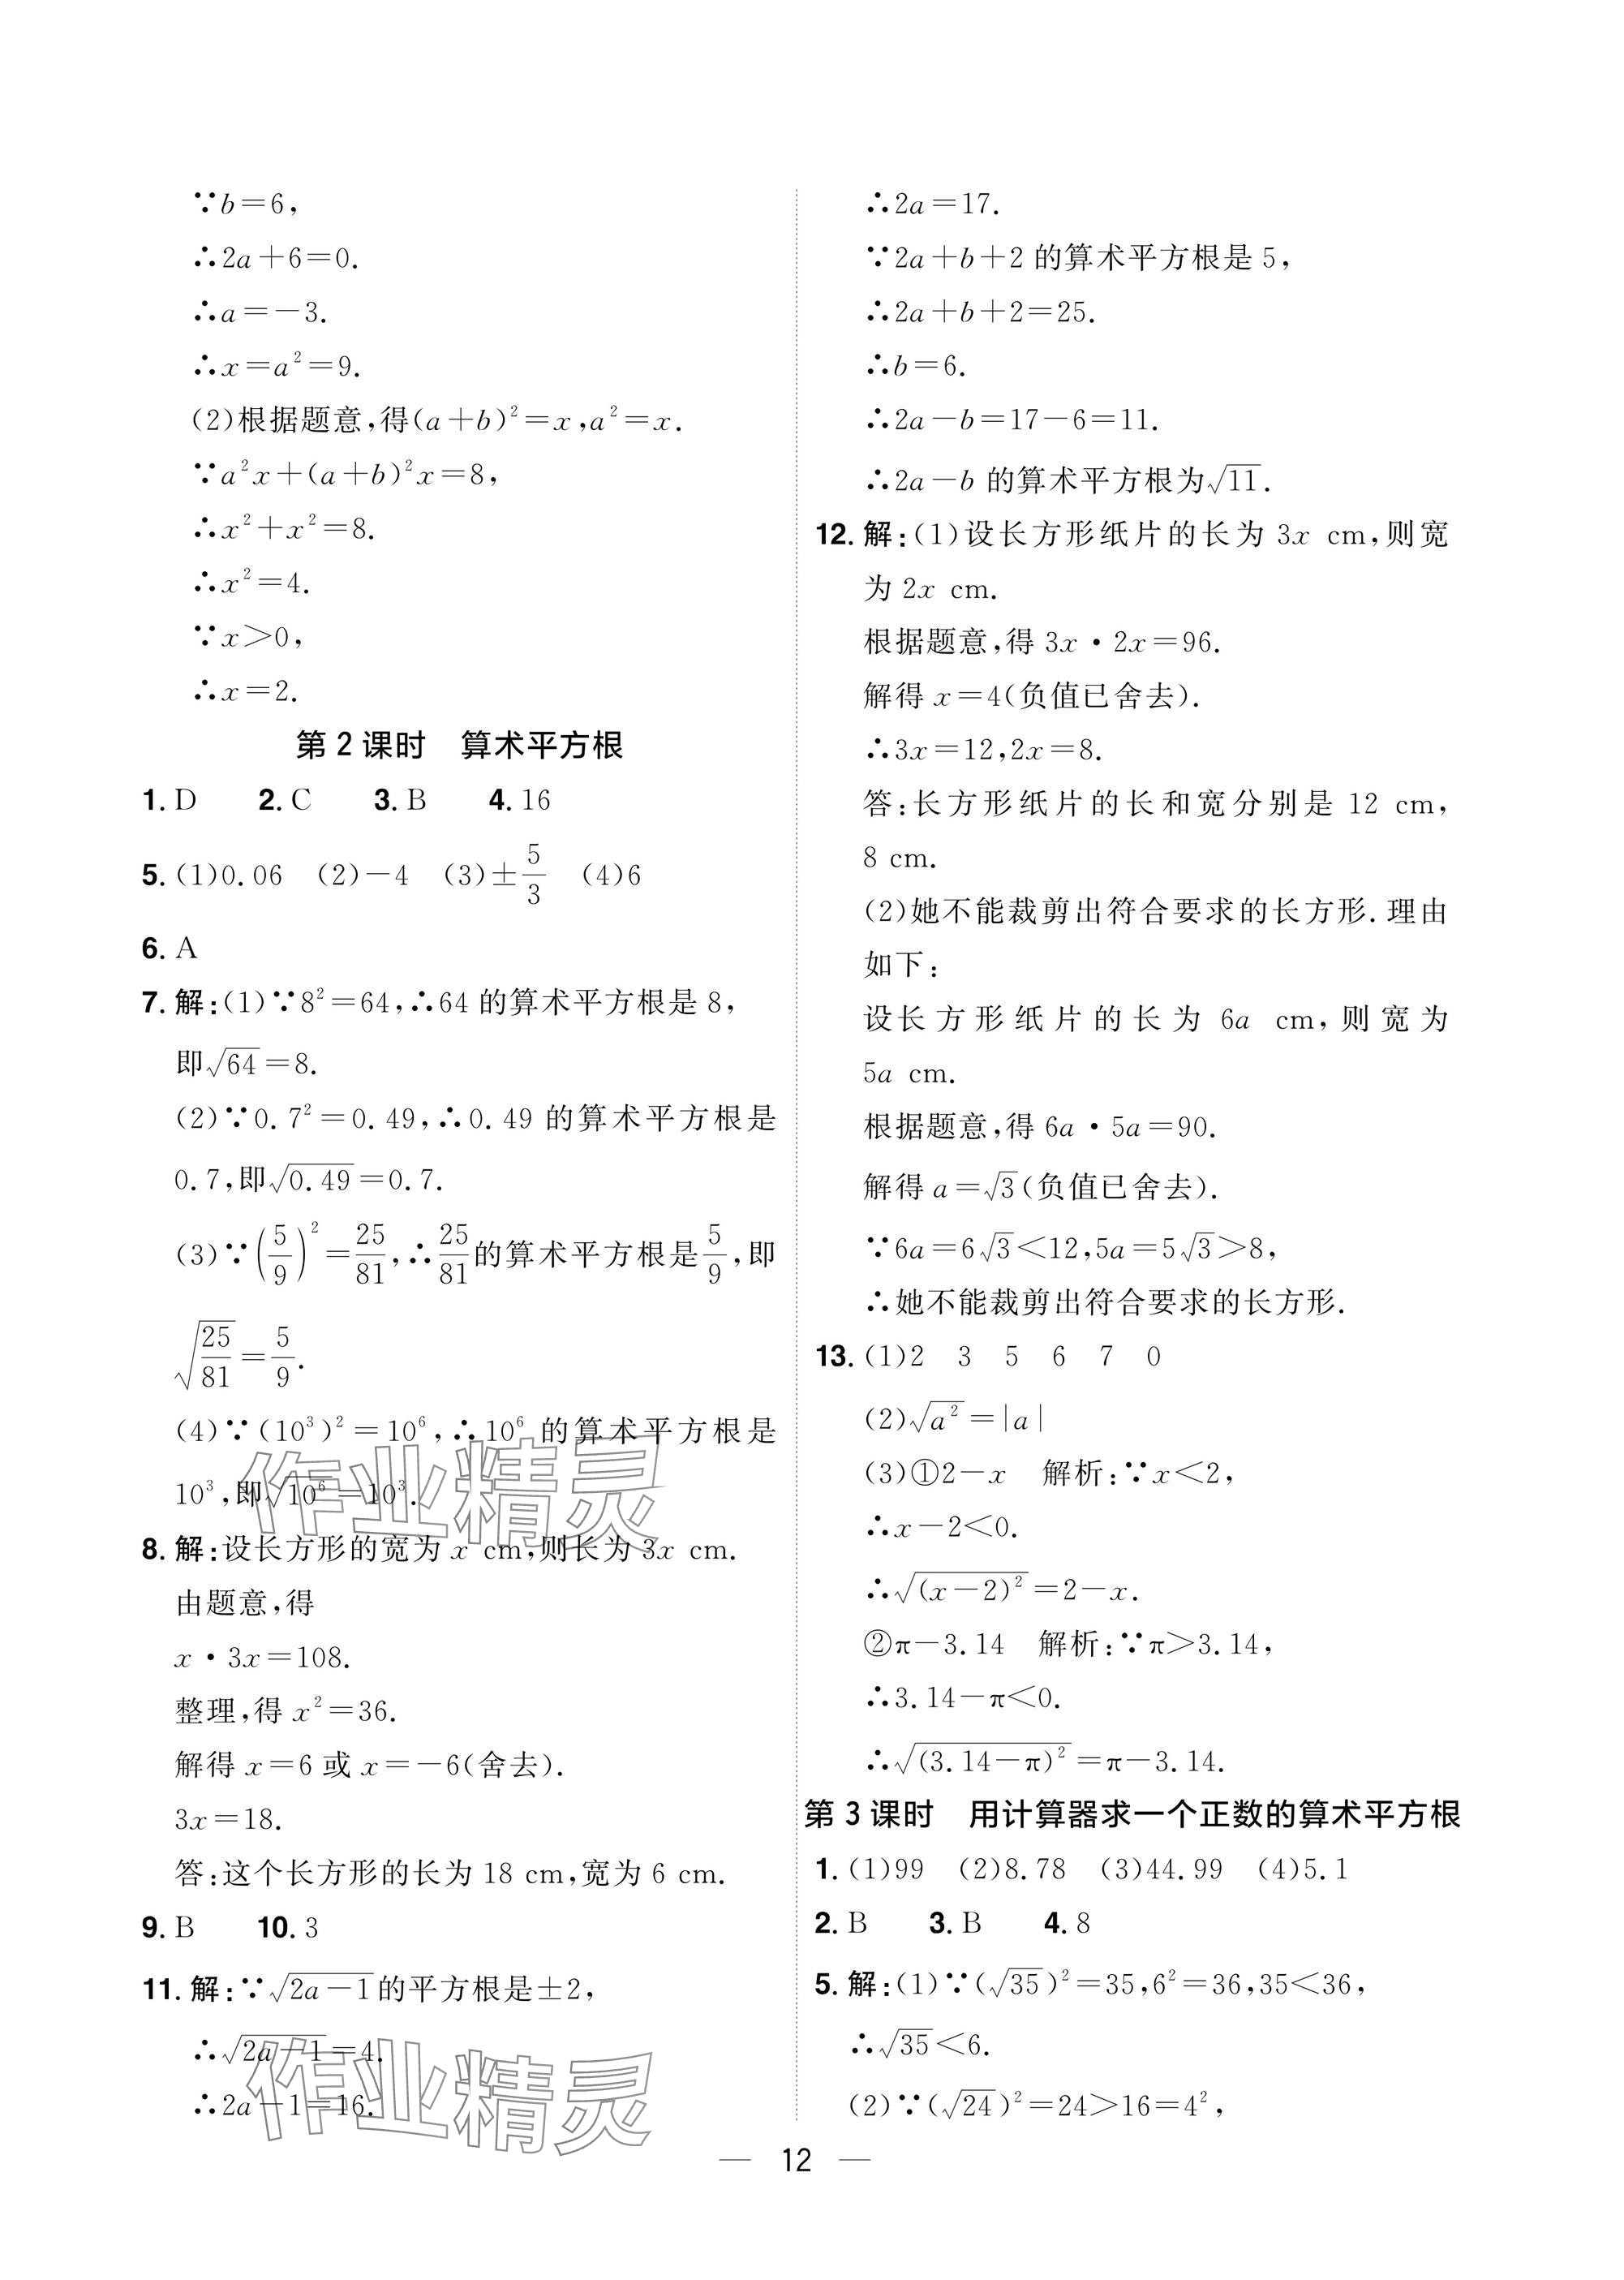 ∵b=6,
∴2a+6=0.
∴a=-3.
∴x=a²=9.
(2)根据题意,得(a+b)²=x,a²=x.
∵a²x+(a+b)²x=8,
∴x²+x²=8.
∴x²=4.
∵x>0,
∴x=2.
第 2 课时　算术平方根
1. D　2. C　3. B　4. 16
5. (1)0.06　(2)-4　(3)±5/3　(4)6
6. A
7. 解:(1)∵8²=64,∴64 的算术平方根是 8,
即√64=8.
(2)∵0.7²=0.49,∴0.49 的算术平方根是
0.7,即√0.49=0.7.
(3)∵(5/9)²=25/81,∴25/81的算术平方根是5/9,即
√(25/81)=5/9.
(4)∵(10³)²=10⁶,∴10⁶ 的算术平方根是
10³,即√10⁶=10³.
8. 解:设长方形的宽为 x cm,则长为 3x cm.
由题意,得
x·3x=108.
整理,得 x²=36.
解得 x=6 或 x=-6(舍去).
3x=18.
答:这个长方形的长为 18 cm,宽为 6 cm.
9. B　10. 3
11. 解:∵√(2a-1)的平方根是±2,
∴√(2a-1)=4.
∴2a-1=16.
∴2a=17.
∵2a+b+2 的算术平方根是 5,
∴2a+b+2=25.
∴b=6.
∴2a-b=17-6=11.
∴2a-b 的算术平方根为√11.
12. 解:(1)设长方形纸片的长为 3x cm,则宽
为 2x cm.
根据题意,得 3x·2x=96.
解得 x=4(负值已舍去).
∴3x=12,2x=8.
答:长方形纸片的长和宽分别是 12 cm,
8 cm.
(2)她不能裁剪出符合要求的长方形.理由
如下:
设长方形纸片的长为 6a cm,则宽为
5a cm.
根据题意,得 6a·5a=90.
解得 a=√3(负值已舍去).
∵6a=6√3<12,5a=5√3>8,
∴她不能裁剪出符合要求的长方形.
13. (1)2　3　5　6　7　0
(2)√a²=|a|
(3)①2-x　解析:∵x<2,
∴x-2<0.
∴√(x-2)²=2-x.
②π-3.14　解析:∵π>3.14,
∴3.14-π<0.
∴√(3.14-π)²=π-3.14.
第 3 课时　用计算器求一个正数的算术平方根
1. (1)99　(2)8.78　(3)44.99　(4)5.1
2. B　3. B　4. 8
5. 解:(1)∵(√35)²=35,6²=36,35<36,
∴√35<6.
(2)∵(√24)²=24>16=4²,
— 12 —
作业精灵
作业精灵